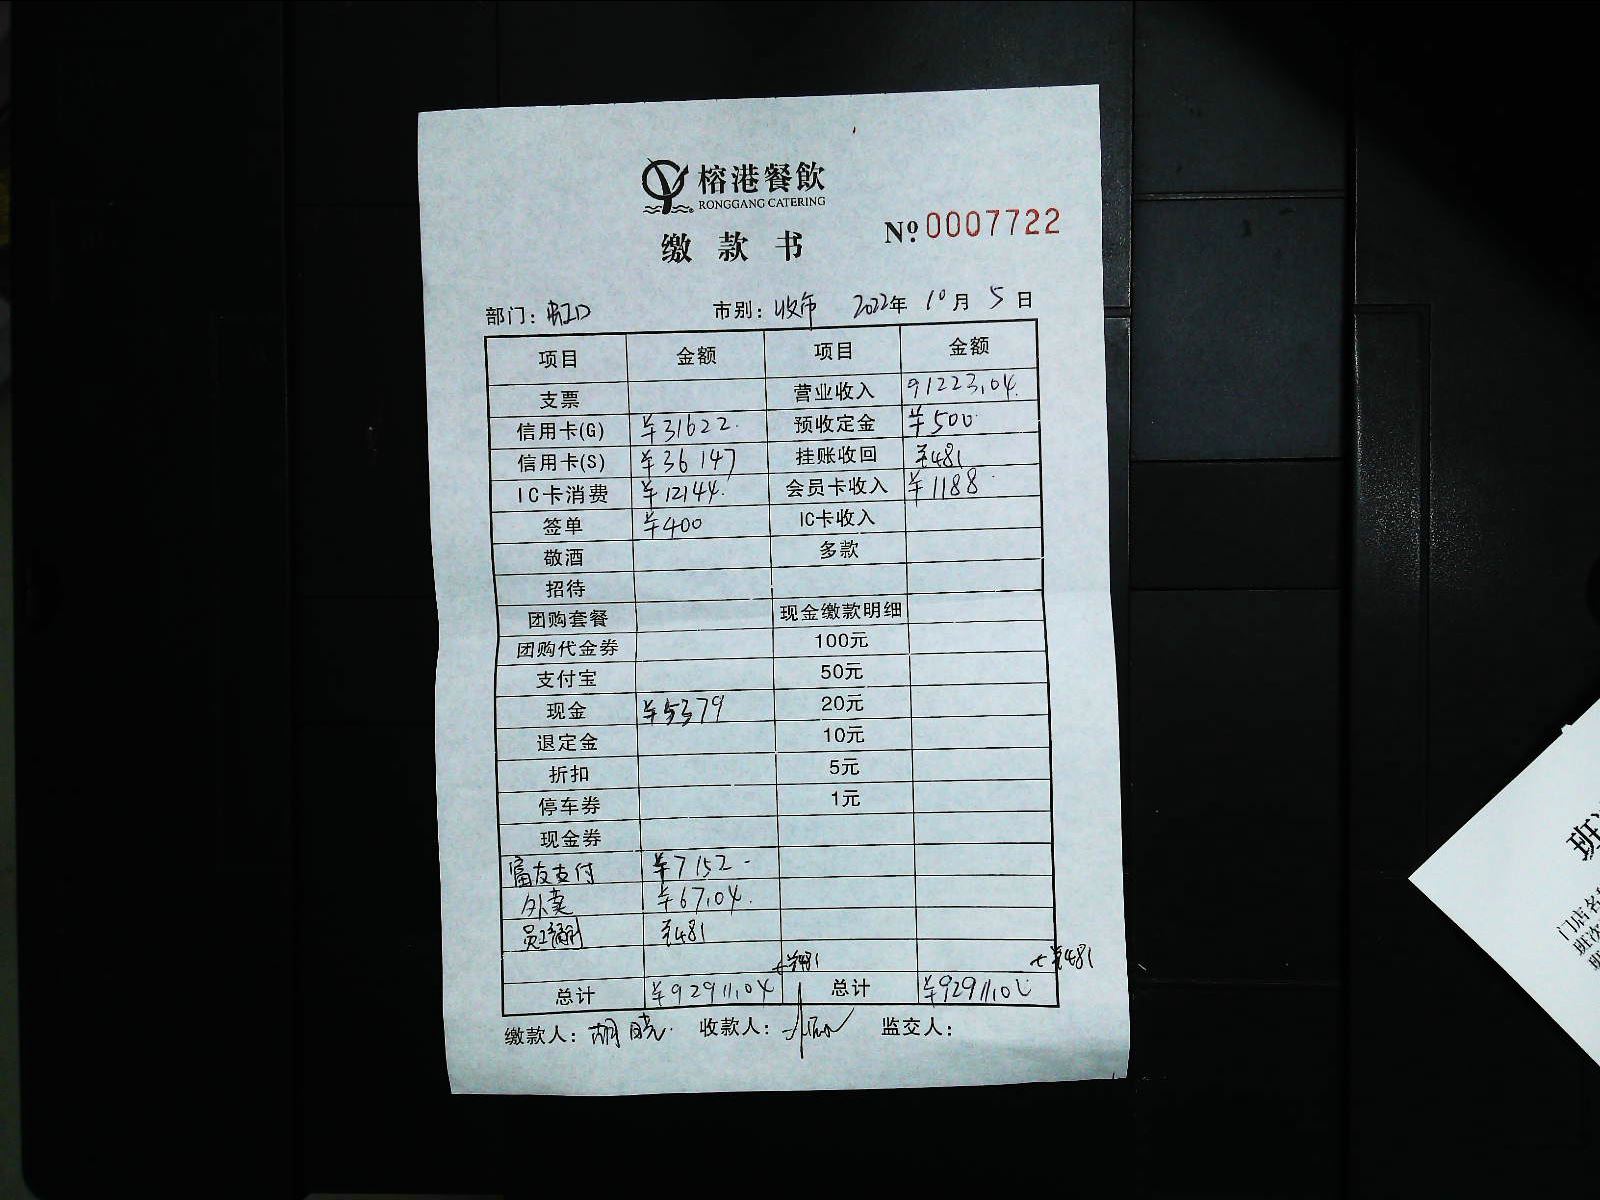 榕港餐飲
RONGGANG CATERING
缴款书 №0007722
部门：虹口 市别：收市 2022年10月5日
项目 金额 项目 金额
支票 营业收入 91223.04
信用卡(G) ¥31622. 预收定金 ¥500
信用卡(S) ¥36147 挂账收回 ¥481
IC卡消费 ¥12144. 会员卡收入 ¥1188
签单 ¥400 IC卡收入
敬酒 多款
招待
团购套餐 现金缴款明细
团购代金券 100元
支付宝 50元
现金 ¥5379 20元
退定金 10元
折扣 5元
停车券 1元
现金券
富友支付 ¥7152-
外卖 ¥67.04.
员工福利 ¥481
+¥481 +¥481
总计 ¥92911.04 总计 ¥92911.04
缴款人：胡晓 收款人： 监交人：
班
门店名
班次
班